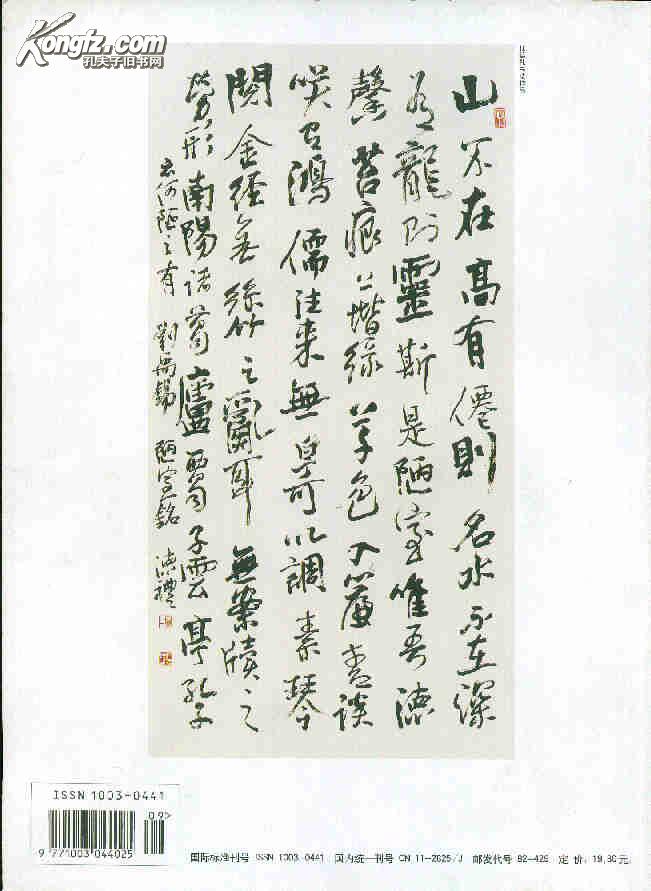 Kongfz.com
孔夫子旧书网
山不在高有僊則名水不在深
有龍則靈斯是陋室唯吾德
馨苔痕上堦緑草色入簾青談
笑有鴻儒往来無白丁可以調素琴
閱金經無絲竹之亂耳無案牍之
勞形南陽諸葛廬西蜀子雲亭孔子
云何陋之有劉禹錫陋室銘德禮
ISSN 1003-0441
09>
9 771003 044025
国际标准刊号 ISSN 1003-0441 国内统一刊号 CN 11-2625/J 邮发代号 82-426 定价：19.80元